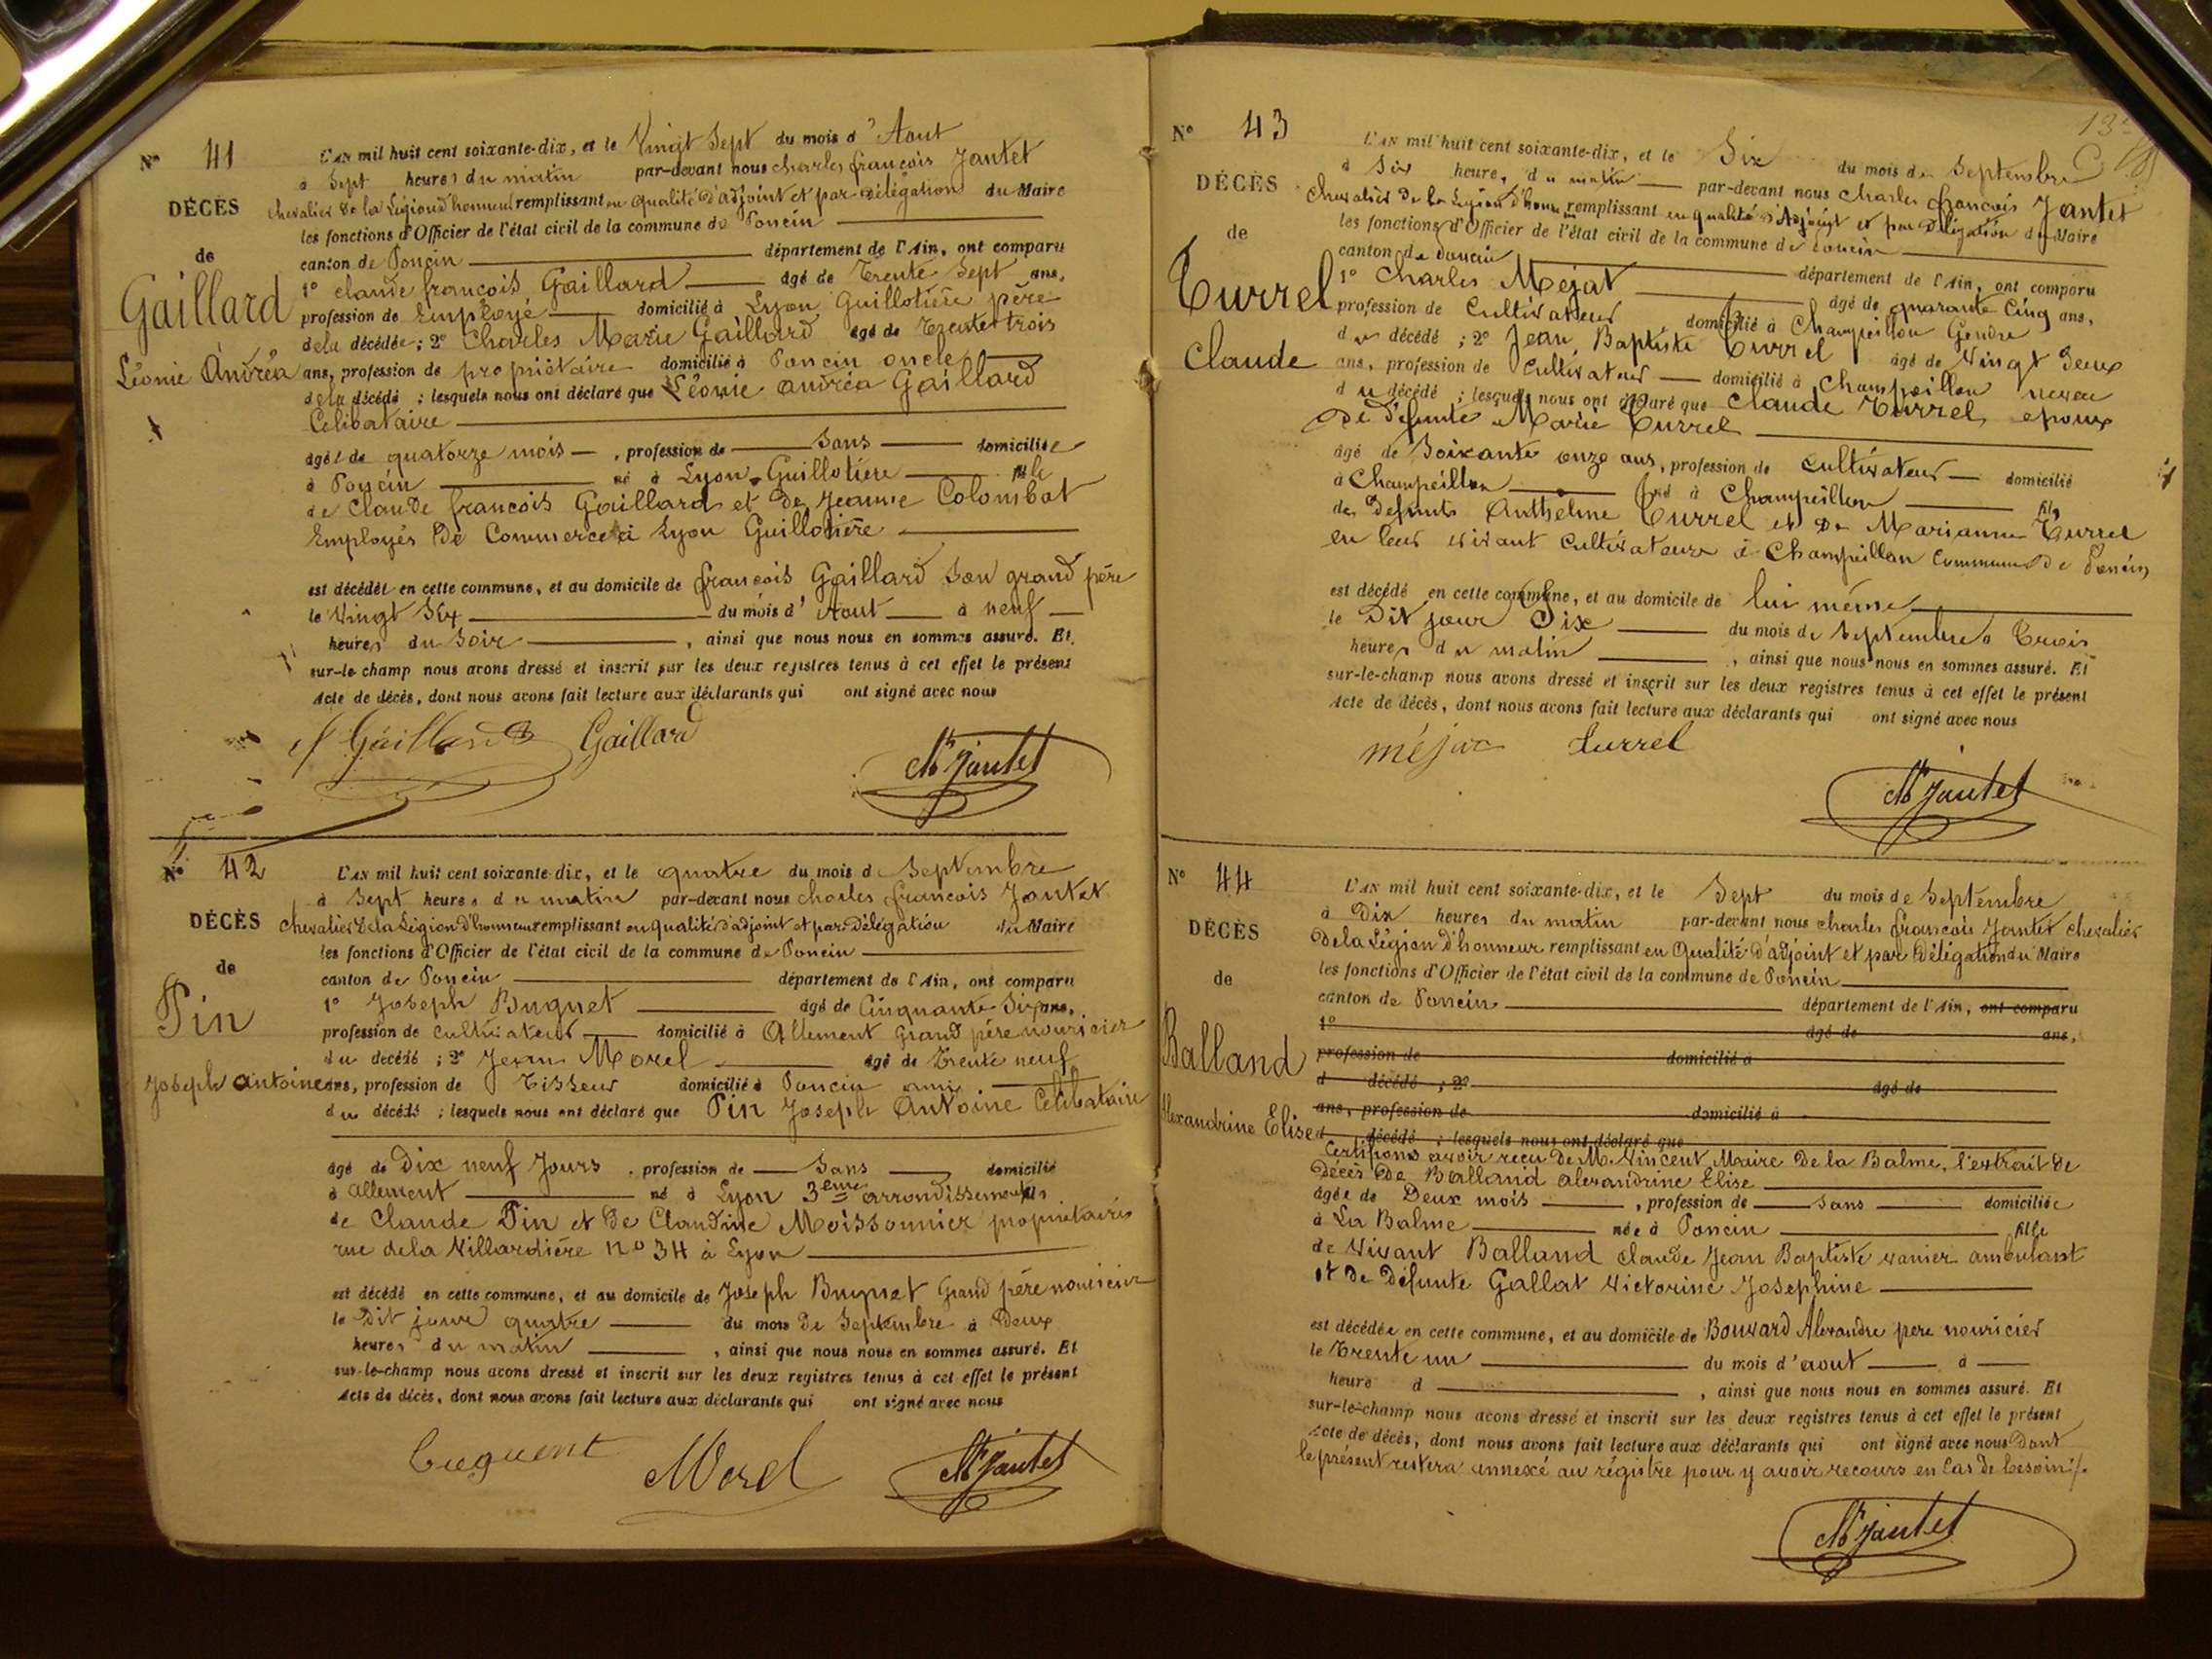 N° 41
DÉCÈS
de
Gaillard
Léonie Andréa
L'AN mil huit cent soixante-dix, et le Vingt Sept du mois d'Aout
à Sept heures du matin par-devant nous Charles françois Jantet
chevalier de la Légion d'honneur remplissant en qualité d'adjoint et par délégation du Maire
les fonctions d'Officier de l'état civil de la commune de Poncin
canton de Poncin département de l'Ain, ont comparu
1° Claude françois Gaillard âgé de Trente Sept ans,
profession de Employé domicilié à Lyon Guillotière père
de la décédée; 2° Charles Marie Gaillard âgé de Trente trois
ans, profession de propriétaire domicilié à Poncin oncle
de la décédé ; lesquels nous ont déclaré que Léonie andréa Gaillard
Celibataire
âgée de quatorze mois, profession de Sans domiciliée
à Poncin né à Lyon Guillotière fille
de Claude francois Gaillard et de Jeanne Colombat
Employés De Commerce à Lyon Guillotière
est décédée en cette commune, et au domicile de françois Gaillard Son grand père
le Vingt Six du mois d'Aout à neuf
heures du Soir, ainsi que nous nous en sommes assuré. Et
sur-le-champ nous avons dressé et inscrit sur les deux registres tenus à cet effet le présent
Acte de décès, dont nous avons fait lecture aux déclarants qui ont signé avec nous
Gaillard Gaillard
Ch Jantet
N° 42
DÉCÈS
de
Pin
Joseph antoine
L'AN mil huit cent soixante-dix, et le quatre du mois de Septembre
à Sept heures du matin par-devant nous Charles francois Jantet
chevalier de la Légion d'honneur remplissant en qualité d'adjoint et par délégation du Maire
les fonctions d'Officier de l'état civil de la commune de Poncin
canton de Poncin département de l'Ain, ont comparu
1° Joseph Buguet âgé de Cinquante Six ans,
profession de cultivateur domicilié à Allement Grand père nouricier
du decédé ; 2° Jean Morel âgé de Trente neuf
ans, profession de Tisseur domicilié à Poncin ami
du décédé ; lesquels nous ont déclaré que Pin Joseph Antoine Celibataire
âgé de Dix neuf Jours, profession de Sans domicilié
à allement né à Lyon 3eme arrondissement fils
de Claude Pin et de Claudine Moissonnier propriétaires
rue de la Villardière n° 34 à Lyon
est décédé en cette commune, et au domicile de Joseph Buguet Grand père nouricier
le Dit jour quatre du mois De Septembre à Deux
heures du matin, ainsi que nous nous en sommes assuré. Et
sur-le-champ nous avons dressé et inscrit sur les deux registres tenus à cet effet le présent
Acte de décès, dont nous avons fait lecture aux déclarants qui ont signé avec nous
Morel Ch Jantet
N° 43
DÉCÈS
de
Turrel
Claude
L'AN mil huit cent soixante-dix, et le Six du mois de Septembre
à Six heures du matin par-devant nous Charles francois Jantet
Chevalier De la Légion d'honneur remplissant en qualité d'Adjoint et par délégation du Maire
les fonctions d'Officier de l'état civil de la commune de Poncin
canton de Poncin département de l'Ain, ont comparu
1° Charles Mejat âgé de quarante Cinq ans,
profession de Cultivateur domicilié à Champeillon Gendre
du décédé ; 2° Jean Baptiste Turrel âgé de Vingt Deux
ans, profession de Cultivateur domicilié à Champeillon neveu
du décédé ; lesquels nous ont déclaré que Claude Turrel, epoux
De Défunte Marie Turrel
âgé de Soixante onze ans, profession de Cultivateur domicilié
à Champeillon né à Champeillon fils
de Defunts Anthelme Turrel et De Marianne Turrel
en leur vivant Cultivateurs à Champeillon Commune De Poncin
est décédé en cette commune, et au domicile de lui même
le Dit jour Six du mois de Septembre à Trois
heures du matin, ainsi que nous nous en sommes assuré. Et
sur-le-champ nous avons dressé et inscrit sur les deux registres tenus à cet effet le présent
Acte de décès, dont nous avons fait lecture aux déclarants qui ont signé avec nous
méjat turrel
Ch Jantet
N° 44
DÉCÈS
de
Balland
Alexandrine Elise
L'AN mil huit cent soixante-dix, et le Sept du mois de Septembre
à Dix heures du matin par-devant nous charles francois Jantet chevalier
De la Légion d'honneur remplissant en Qualité d'adjoint et par Délégation du Maire
les fonctions d'Officier de l'état civil de la commune de Poncin
canton de Poncin département de l'Ain, ont comparu
1° âgé de ans,
profession de domicilié à
d décédé ; 2° âgé de
ans, profession de domicilié à
d décédé ; lesquels nous ont déclaré que
Certifions avoir reçu De M. Vincent Maire De la Balme, l'extrait De
Décès De Balland alexandrine Elise
âgée de Deux mois, profession de Sans domiciliée
à La Balme née à Poncin fille
de Vivant Balland Claude Jean Baptiste vanier ambulant
et De Défunte Gallat Victorine Josephine
est décédée en cette commune, et au domicile de Bouvard Alexandre pere nouricier
le Trente un du mois d'aout à
heure d, ainsi que nous nous en sommes assuré. Et
sur-le-champ nous avons dressé et inscrit sur les deux registres tenus à cet effet le présent
Acte de décès, dont nous avons fait lecture aux déclarants qui ont signé avec nous Dont
le présent restera annexé au régistre pour y avoir recours en Cas De besoin
Ch Jantet